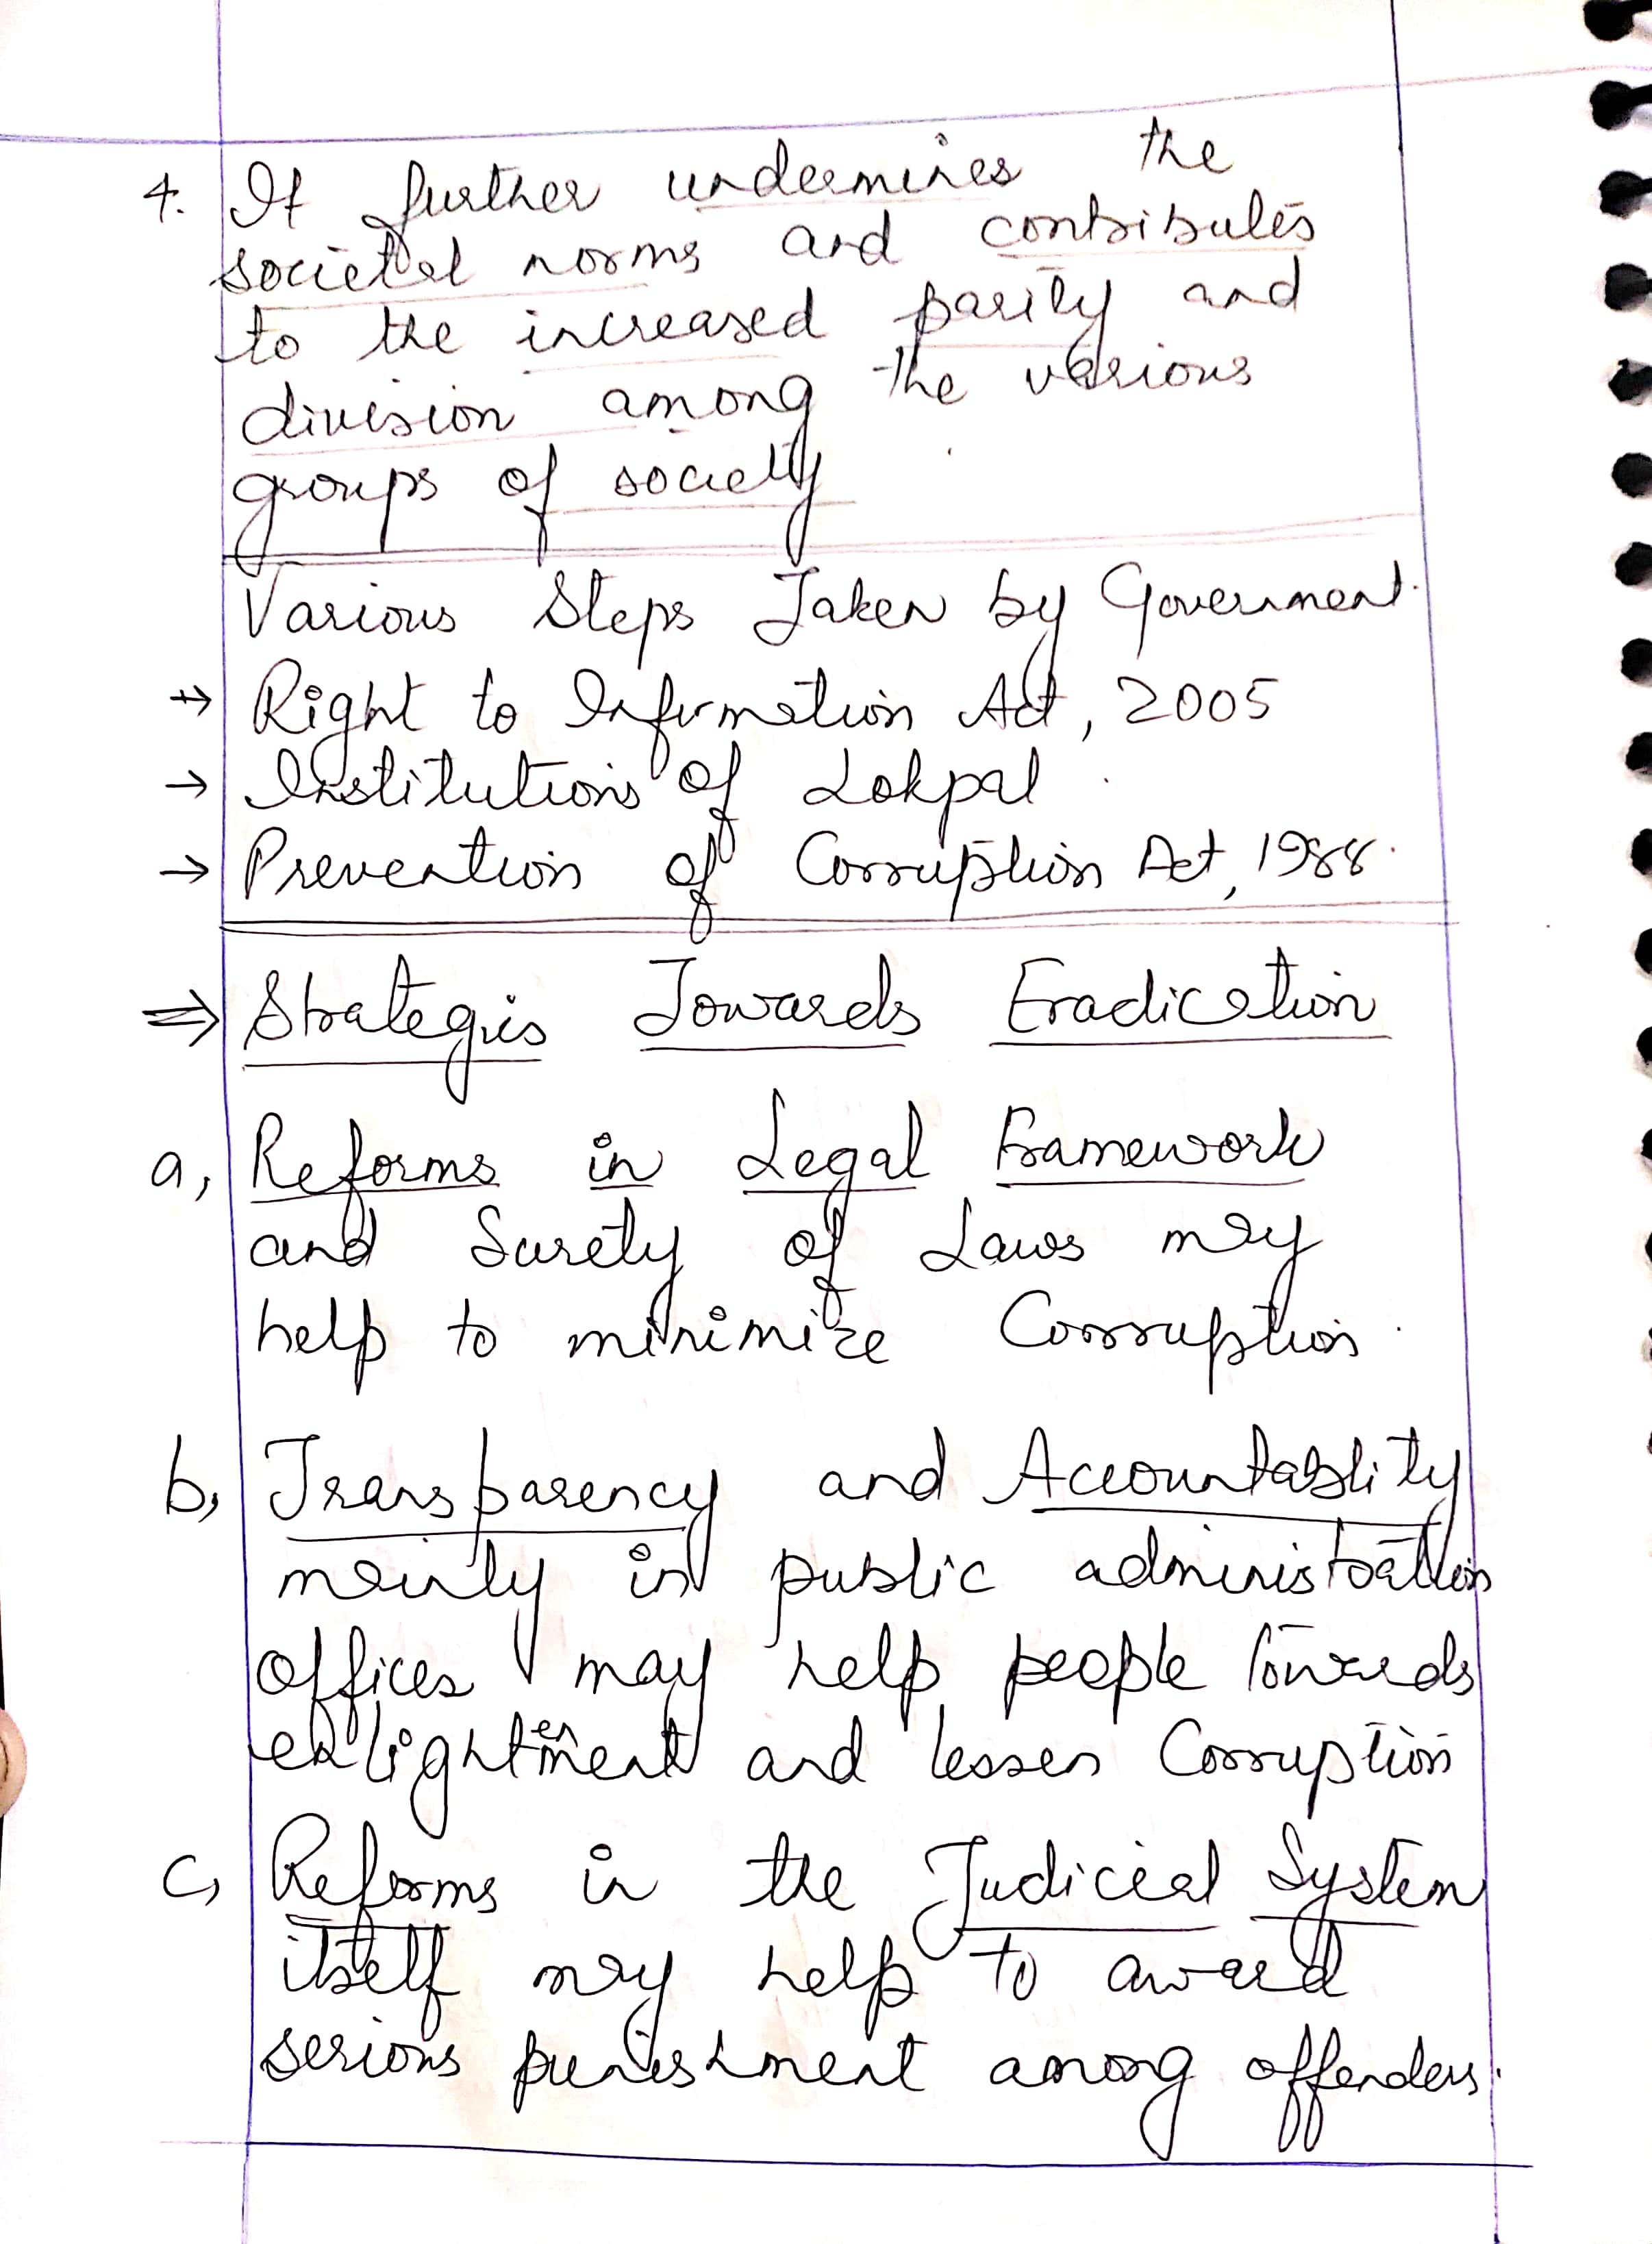 4. It further undermines the
societal norms and contributes
to the increased parity and
division among the various
groups of society
Various Steps Taken by Government.
→ Right to Information Act, 2005
→ Institutions of Lokpal.
→ Prevention of Corruption Act, 1988.
⇒ Strategies Towards Eradication
a, Reforms in Legal Framework
and Surety of Laws may
help to minimize Corruption.
b, Transparency and Accountability
mainly in public administration
offices may help people towards
enlightenment and lessen Corruption
c, Reforms in the Judicial System
itself may help to award
serious punishment among offenders.